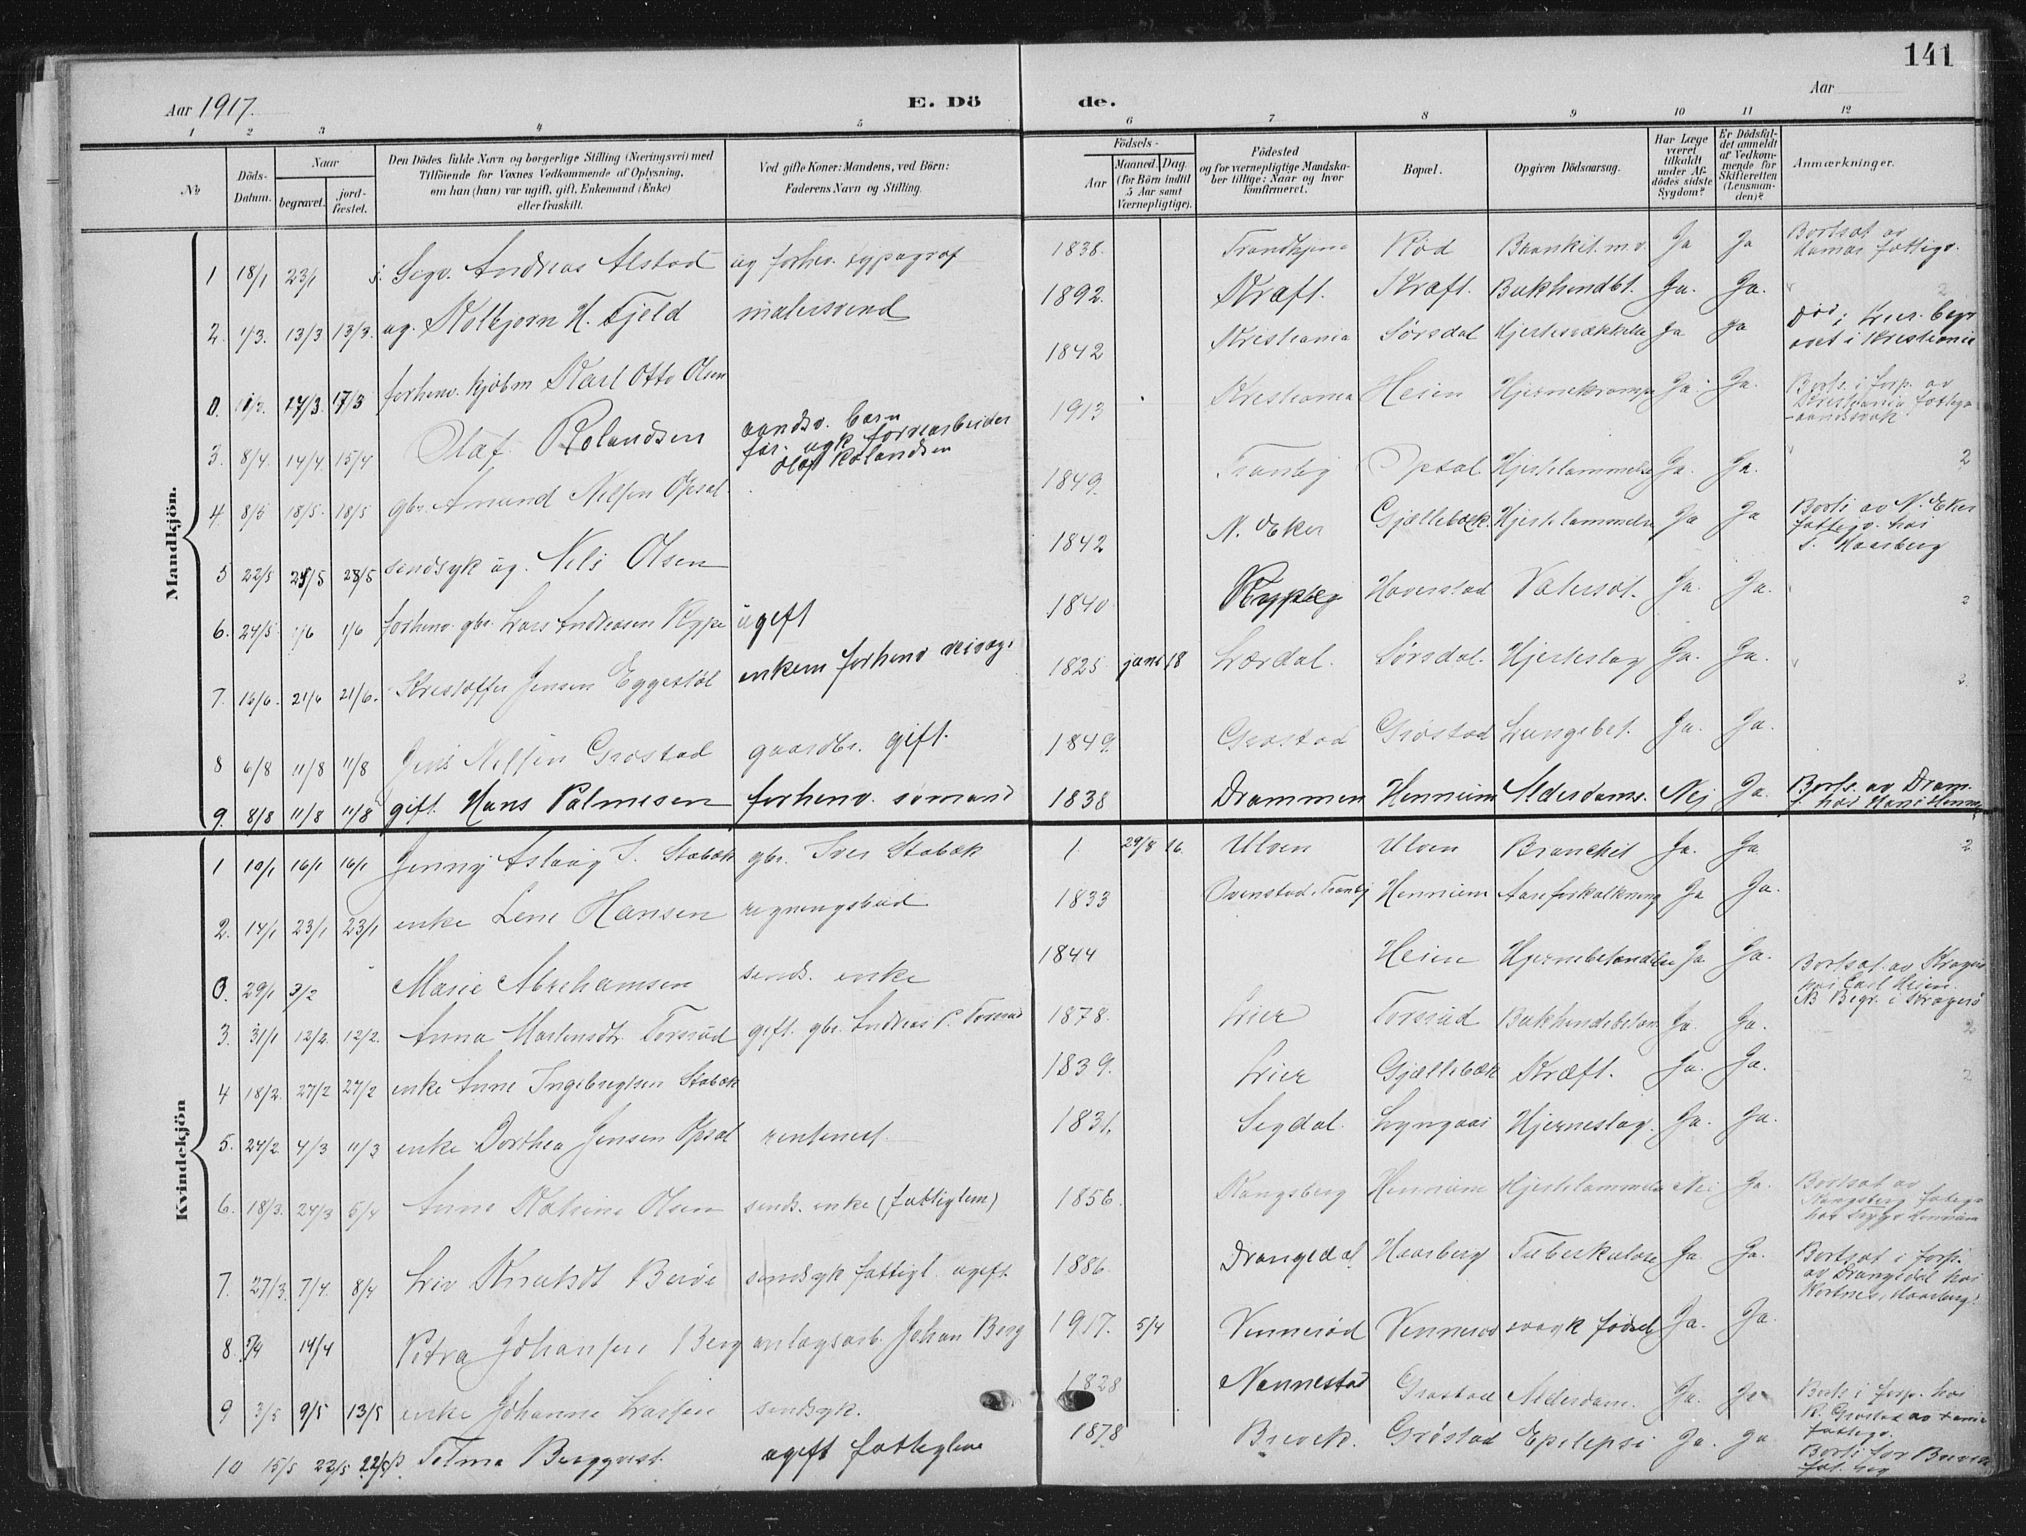 141
Aar 1917.
E. Dö
de.
Aar
1 2 3 4 5 6 7 8 9 10 11 12
No
Döds-Datum.
Naar
begravet.
jord-fæstet.
Den Dödes fulde Navn og borgerlige Stilling (Næringsvei) med Tilföiende for Voxnes Vedkommende af Oplysning, om han (hun) var ugift, gift, Enkemand (Enke) eller fraskilt.
Ved gifte Koner: Mandens, ved Börn: Faderens Navn og Stilling.
Födsels-
Aar
Maaned.
Dag.
(for Börn indtil 5 Aar samt Værnepligtige).
Födested og for værnepligtige Mandskaber tillige: Naar og hvor konfirmeret.
Bopæl.
Opgiven Dödsaarsag.
Har Læge været tilkaldt under Afdödes sidste Sygdom?
Er Dödsfaldet anmeldt af Vedkommende for Skifteretten (Lensmanden)?
Anmærkninger.
Mandkjön.
1 18/1 23/1 Andreas Alstad ug forhv. typograf 1838 Trondhjem Rød Ja Ja Bortsat av Hamar fattigv.
2. 1/3. 13/3 13/3. ug. Kolbjørn H. Fjeld malersvend 1892. Kræft. Kræft. Ja. Ja.
0. 17/3. 17/3 forhenv. kjøbm Karl Otto Olsen 1842 Kristiania Sørsdal Hjertesvækkelse Ja Ja Død i Lier. Begravet i Kristiania
3. 8/4. 14/4. 15/4 Olaf Rolandsen aandsv. barn Olaf Rolandsen 1913 Kristiania Heien Hjernekrampe Ja. Ja. Borts. i forp. av Kristiania fattigv. aandssvak
4. 8/5 18/5. 18/5 gbr. Amund Nilsen Opsal 1849. Tranby Opsal Hjertelammelse Ja. Ja. 2
5 22/5 28/5 sindsyk ug. Nils Olsen 1842 N. Eker Gjellebæk. Hjertelammelse Ja Ja Borts av N. Eker fattigv. hos S. Haarberg
6. 24/5. 1/6 1/6 forhenv. gbr. Lars Andreasen Ryppe ugift 1840 Haverstad Vatersot. Ja. Ja. 2
7. 16/6. 21/6 21/6. Kristoffer Jensen Eggestøl enkem forhenv veivog. 1825 juni 18 Lærdal. Sørsdal. Hjerteslag Ja. Ja. 2.
8 6/8 11/8 11/8 Jens Nilsen Grøstad gaardbr. gift. 1849. Grøstad Grøstad Lungebet. Ja. Ja.
9. 8/8 11/8 11/8 gift. Hans Palmesen forhenv. sømand 1838 Drammen Hennum Alderdoms. Nej Ja. Borts. av Dram. f. hos Hans Hennum
Kvindekjön
1 10/1 16/1 16/1 Jenny Aslaug I. Stabæk gbr. Iver Stabæk 1 29/8 16. Ulven Ulven Bronchit Ja. Ja. 2
2. 14/1 23/1 23/1 enke Lene Hansen regningsbud 1833 Ovenstad, Tranby Hennum Aareforkalkning Ja Ja.
0. 29/1 3/2 Marie Abrahamsen sinds. enke 1844 Heien Hjernebetændelse Ja Ja. Bortsat av Kragerø hos Carl Heien. NB Begr. i Kragerø
3. 31/1 12/2 12/2. Anna Martinsdtr Torsrud gift. gbr. Andreas P. Torsrud 1878. Lier Torsrud Bukhindebetæn Ja. Ja. 2
4 18/2. 27/2 27/2 enke Anne Ingebregtsen Stabæk 1839. Lier Gjellebæk Kræft. Ja. Ja. 2
5. 24/2. 4/3 11/3 enke Dorthea Jensen Opsal rentenist 1831. Sigdal. Lyngaas Hjerneslag. Ja. Ja.
6. 18/3. 24/3 5/4 Anne Olsen sinds. enke (fattiglem) 1856. Kongsberg Hennum Hjertelammelse Nei Ja. Bortsat av Kongsberg fattigv. hos Hennum
7. 27/3. 7/4. 8/4 Liv Knutsdt Berøe sindsyk fattigl. ugift 1886. Drangedal Haarberg Tuberkulose Ja. Ja. Bortsat i forpl. av Drangedal hos Kortnes, Haarberg.
8. 5/4 14/4 Petra Johansen Berg anlægsarb. Johan Berg 1917. 5/4 Vennerød Vennerød svak fødsel Ja. Ja.
9 3/5 9/5 13/5 enke Johanne Larsen sindsyk. 1828 Nannestad Grøstad Alderdom. Ja. Ja Borts i forp. hos R. Grøstad av fattigv.
10 15/5 22/5 22/5 Telma Bergqvist. ugift fattiglem 1878 Brevik. Grøstad Epilepsi Ja. Ja Borts. for Brevik